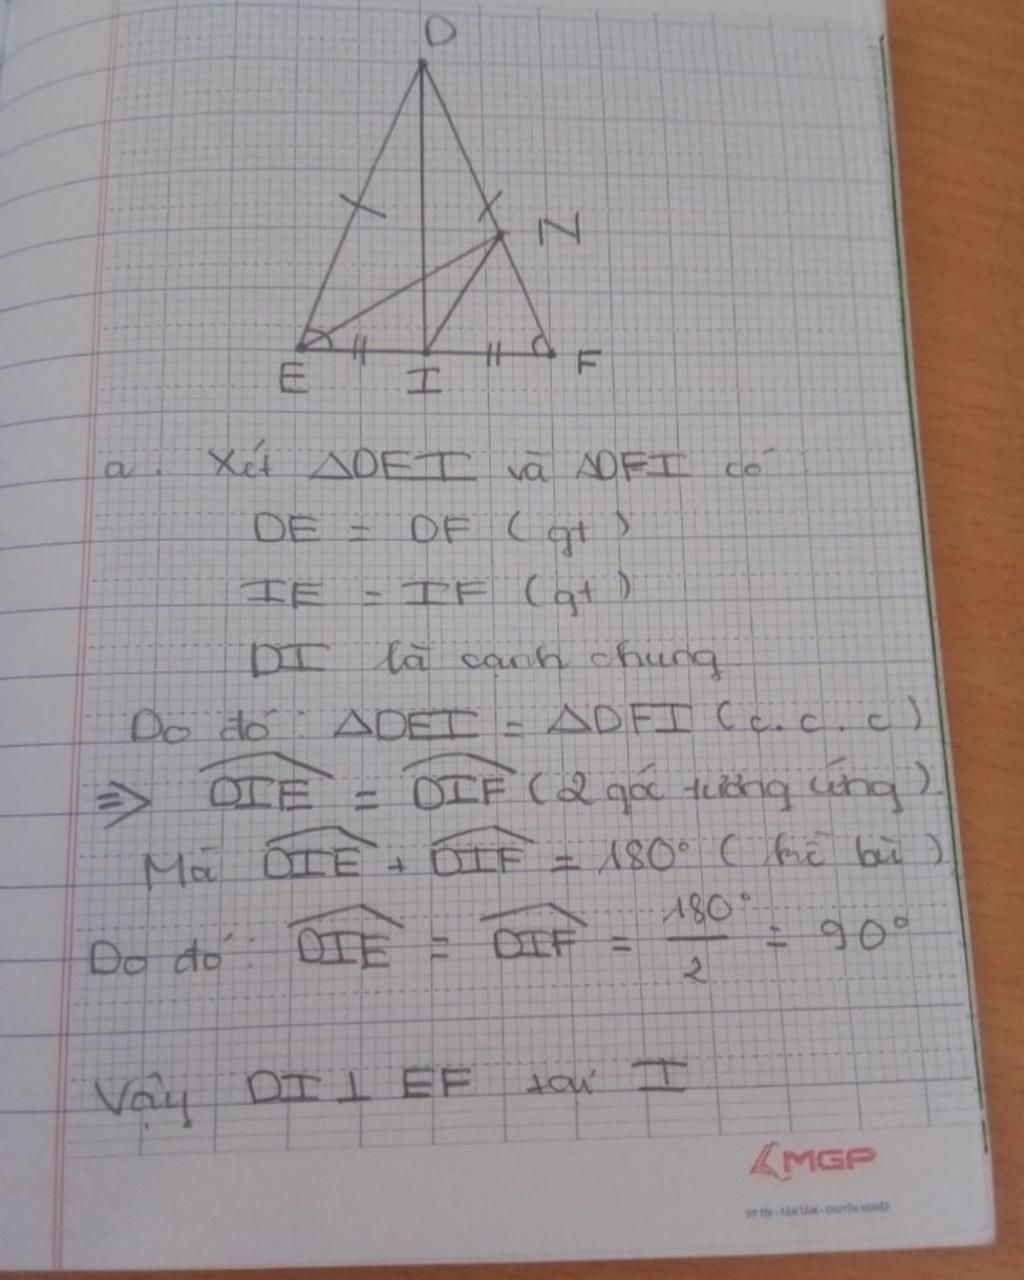 D
N
E I F
a. Xét ΔDEI và ΔDFI có:
DE = DF (gt)
IE = IF (gt)
DI là cạnh chung
Do đó: ΔDEI = ΔDFI (c.c.c)
⇒ \widehat{DIE} = \widehat{DIF} (2 góc tương ứng)
Mà \widehat{DIE} + \widehat{DIF} = 180° (kề bù)
Do đó: \widehat{DIE} = \widehat{DIF} = 180°/2 = 90°
Vậy DI ⊥ EF tại I
MGP
UY TÍN - TẬN TÂM - CHUYÊN NGHIỆP